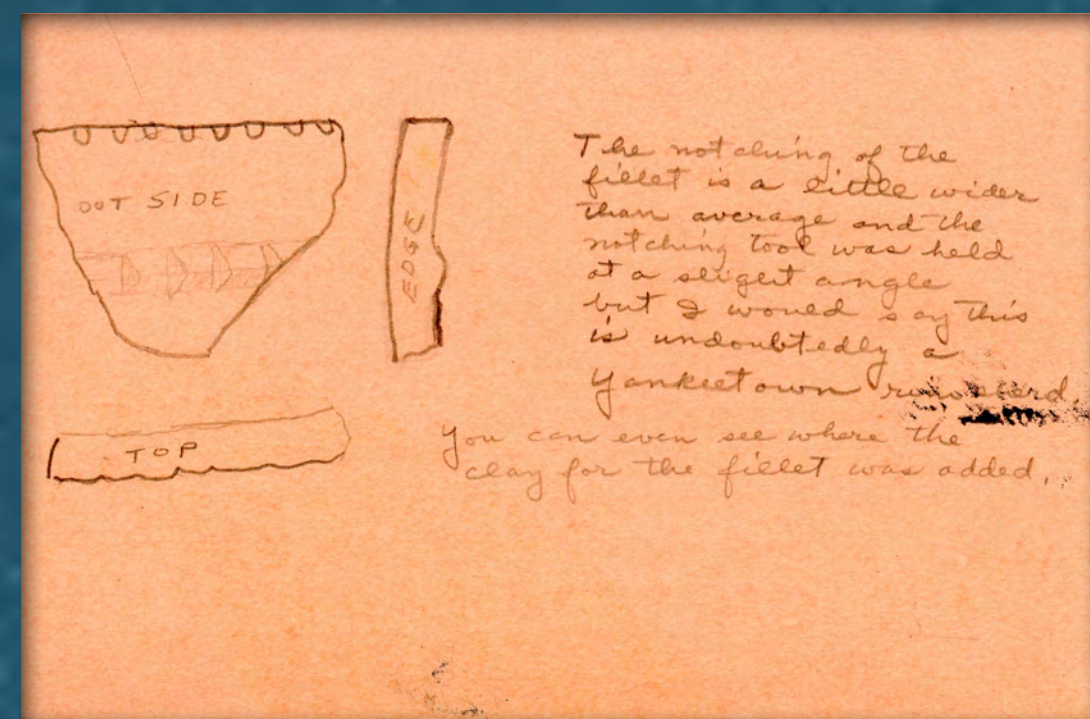 OUT SIDE
EDGE
TOP
The notching of the
fillet is a little wider
than average and the
notching tool was held
at a sligert angle
but I would say this
is undoubtedly a
Yankeetown
You can even see where the
clay for the fillet was added.